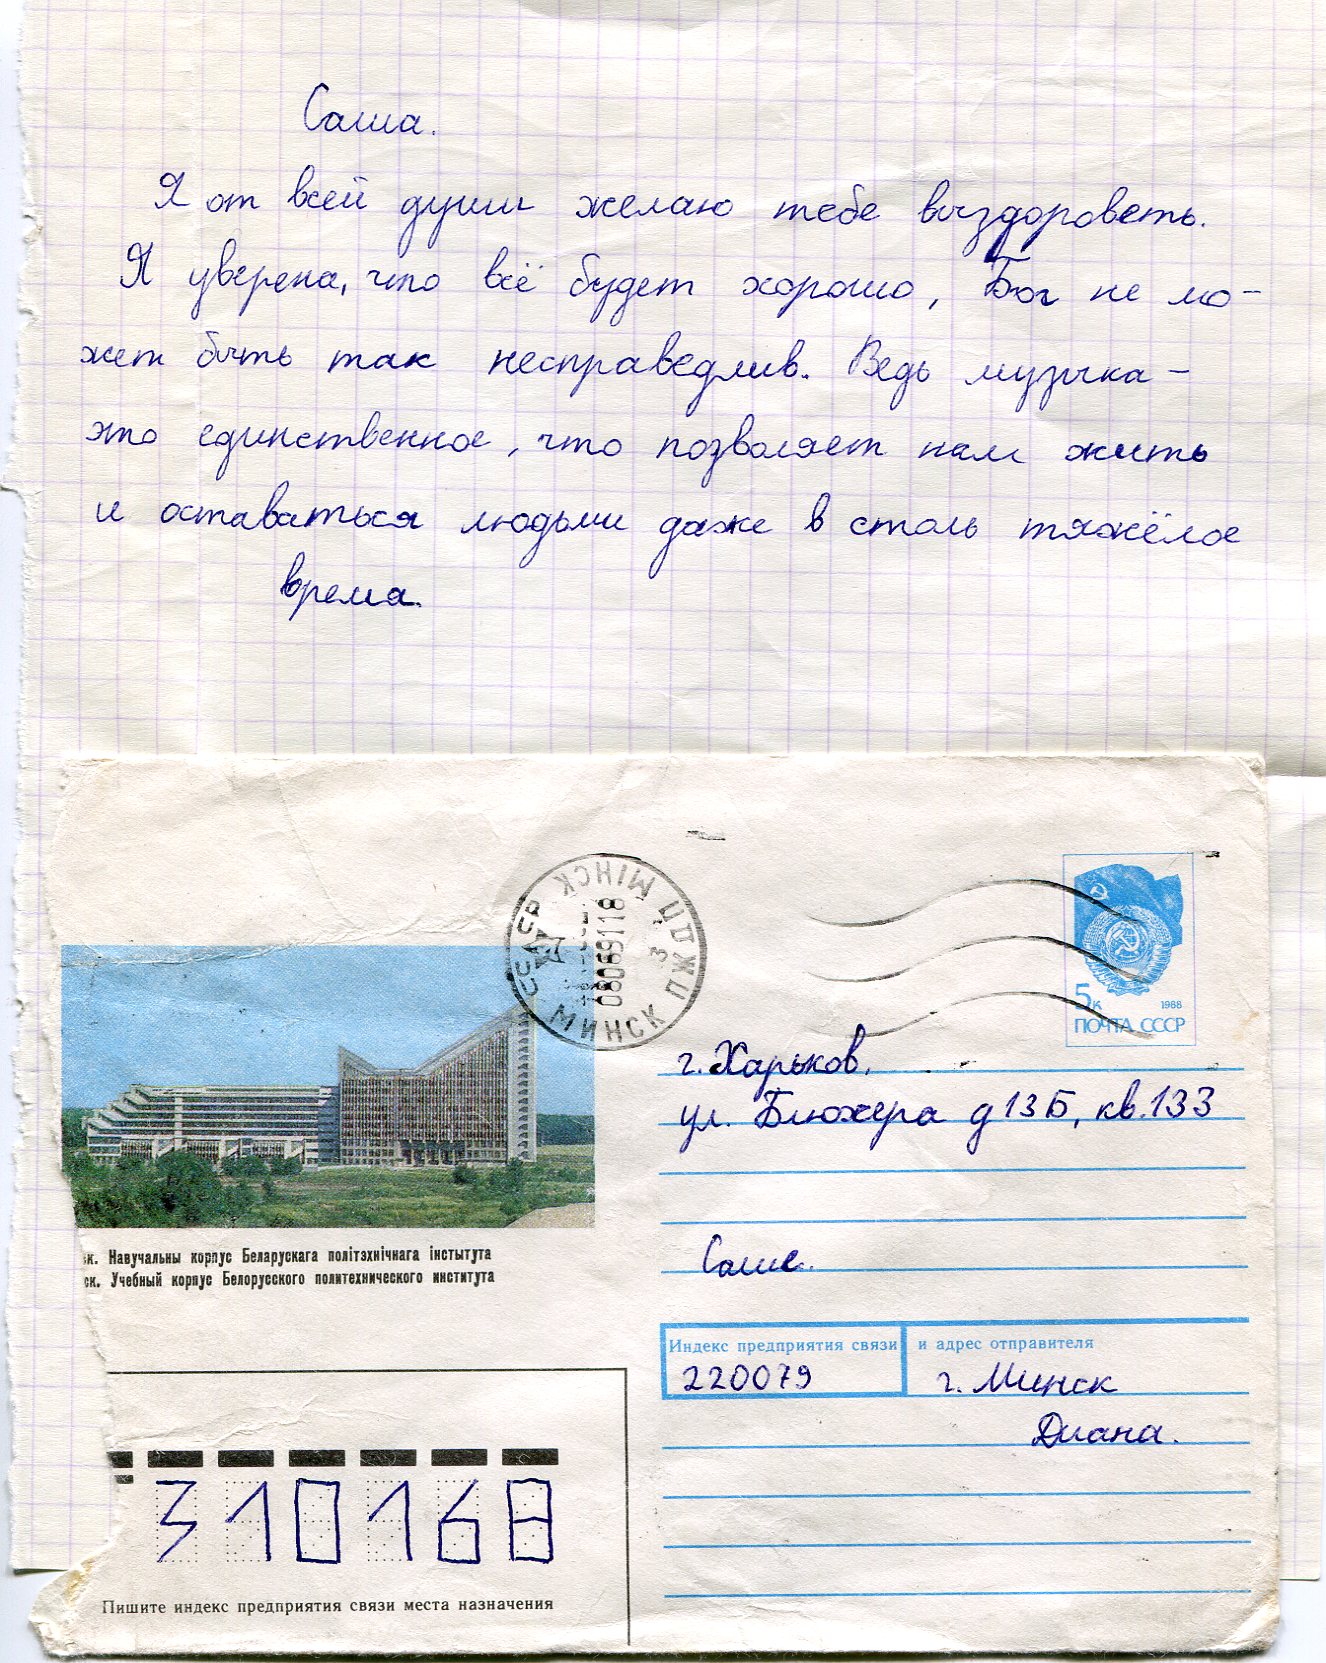 Саша.
Я от всей души желаю тебе выздороветь.
Я уверена, что всё будет хорошо, Бог не мо-
жет быть так несправедлив. Ведь музыка -
это единственное, что позволяет нам жить
и оставаться людьми даже в столь тяжёлое
время.
МІНСК ЦПЖП
3
МИНСК
5к 1988
ПОЧТА СССР
г. Харьков.
ул. Блюхера д 13 Б, кв. 133
Саше.
к. Навучальны корпус Беларускага політэхнічнага інстытута
ск. Учебный корпус Белорусского политехнического института
Индекс предприятия связи и адрес отправителя
220079 г. Минск
Диана.
310168
Пишите индекс предприятия связи места назначения